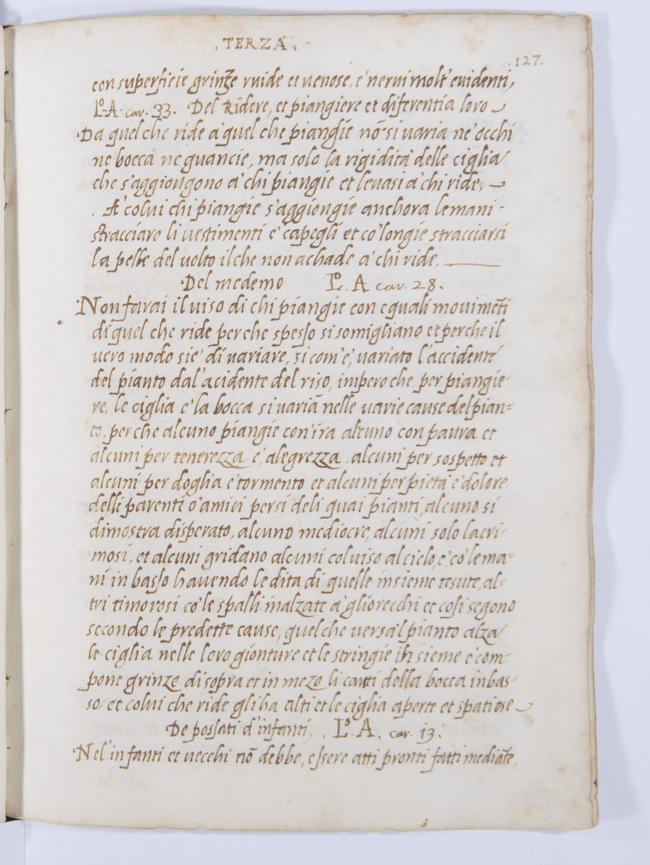 . TERZA .
.127.
con superficie grinze ruide et venose, e' nervi molt' evidenti,
Lº. A. car. 33. Del Ridere, et piangiere et diferentia loro
Da quel che ride a' quel che piangie nõ si varia ne' occhi
ne bocca ne guancie, ma solo la rigidità delle ciglia
che s'aggiongono a' chi piangie et levasi a' chi ride,
. A' colui chi piangie s'aggiongie anchora le mani
stracciare li vestimenti e' capegli et co' l'ongie stracciarsi
la pelle del volto il che non achade a' chi ride,
Del medemo Lº. A car. 28.
Non farai il viso di chi piangie con equali movimẽti
di quel che ride perche spesso si somigliano et perche il
vero modo sie' di variare, si com'e' variato l'accidente
del pianto dal'acidente del riso, impero che, per piangie-
re, le ciglia e' la bocca si varia nelle varie cause del pian=
to, perche alcuno piangie con ira alcuno con paura et
alcuni per tenerezza e' alegrezza, alcuni per sospetto et
alcuni per doglia e' tormento et alcuni per pietà e' dolore
delli parenti o' amici persi deli quai pianti, alcuno si
dimostra disperato, alcuno mediocre, alcuni solo lacri-
mosi, et alcuni gridano alcuni col viso al cielo, e' co' le ma-
ni in basso havendo le dita di quelle insieme tesute, al-
tri timorosi co' le spalli inalzate a' gli orecchi et cosi segono
secondo le predette cause, quel che versa'l pianto alza
le ciglia nelle loro gionture et le stringie insieme e' com-
pone grinze di sopra et in mezo li canti della bocca in bas-
so, et colui che ride gli ha alti et le ciglia aperte et spatiose
De possati d'infanti, . Lº. A. car. 13.
Nel'infanti et vecchi nõ debbe, essere atti pronti fatti mediãte,